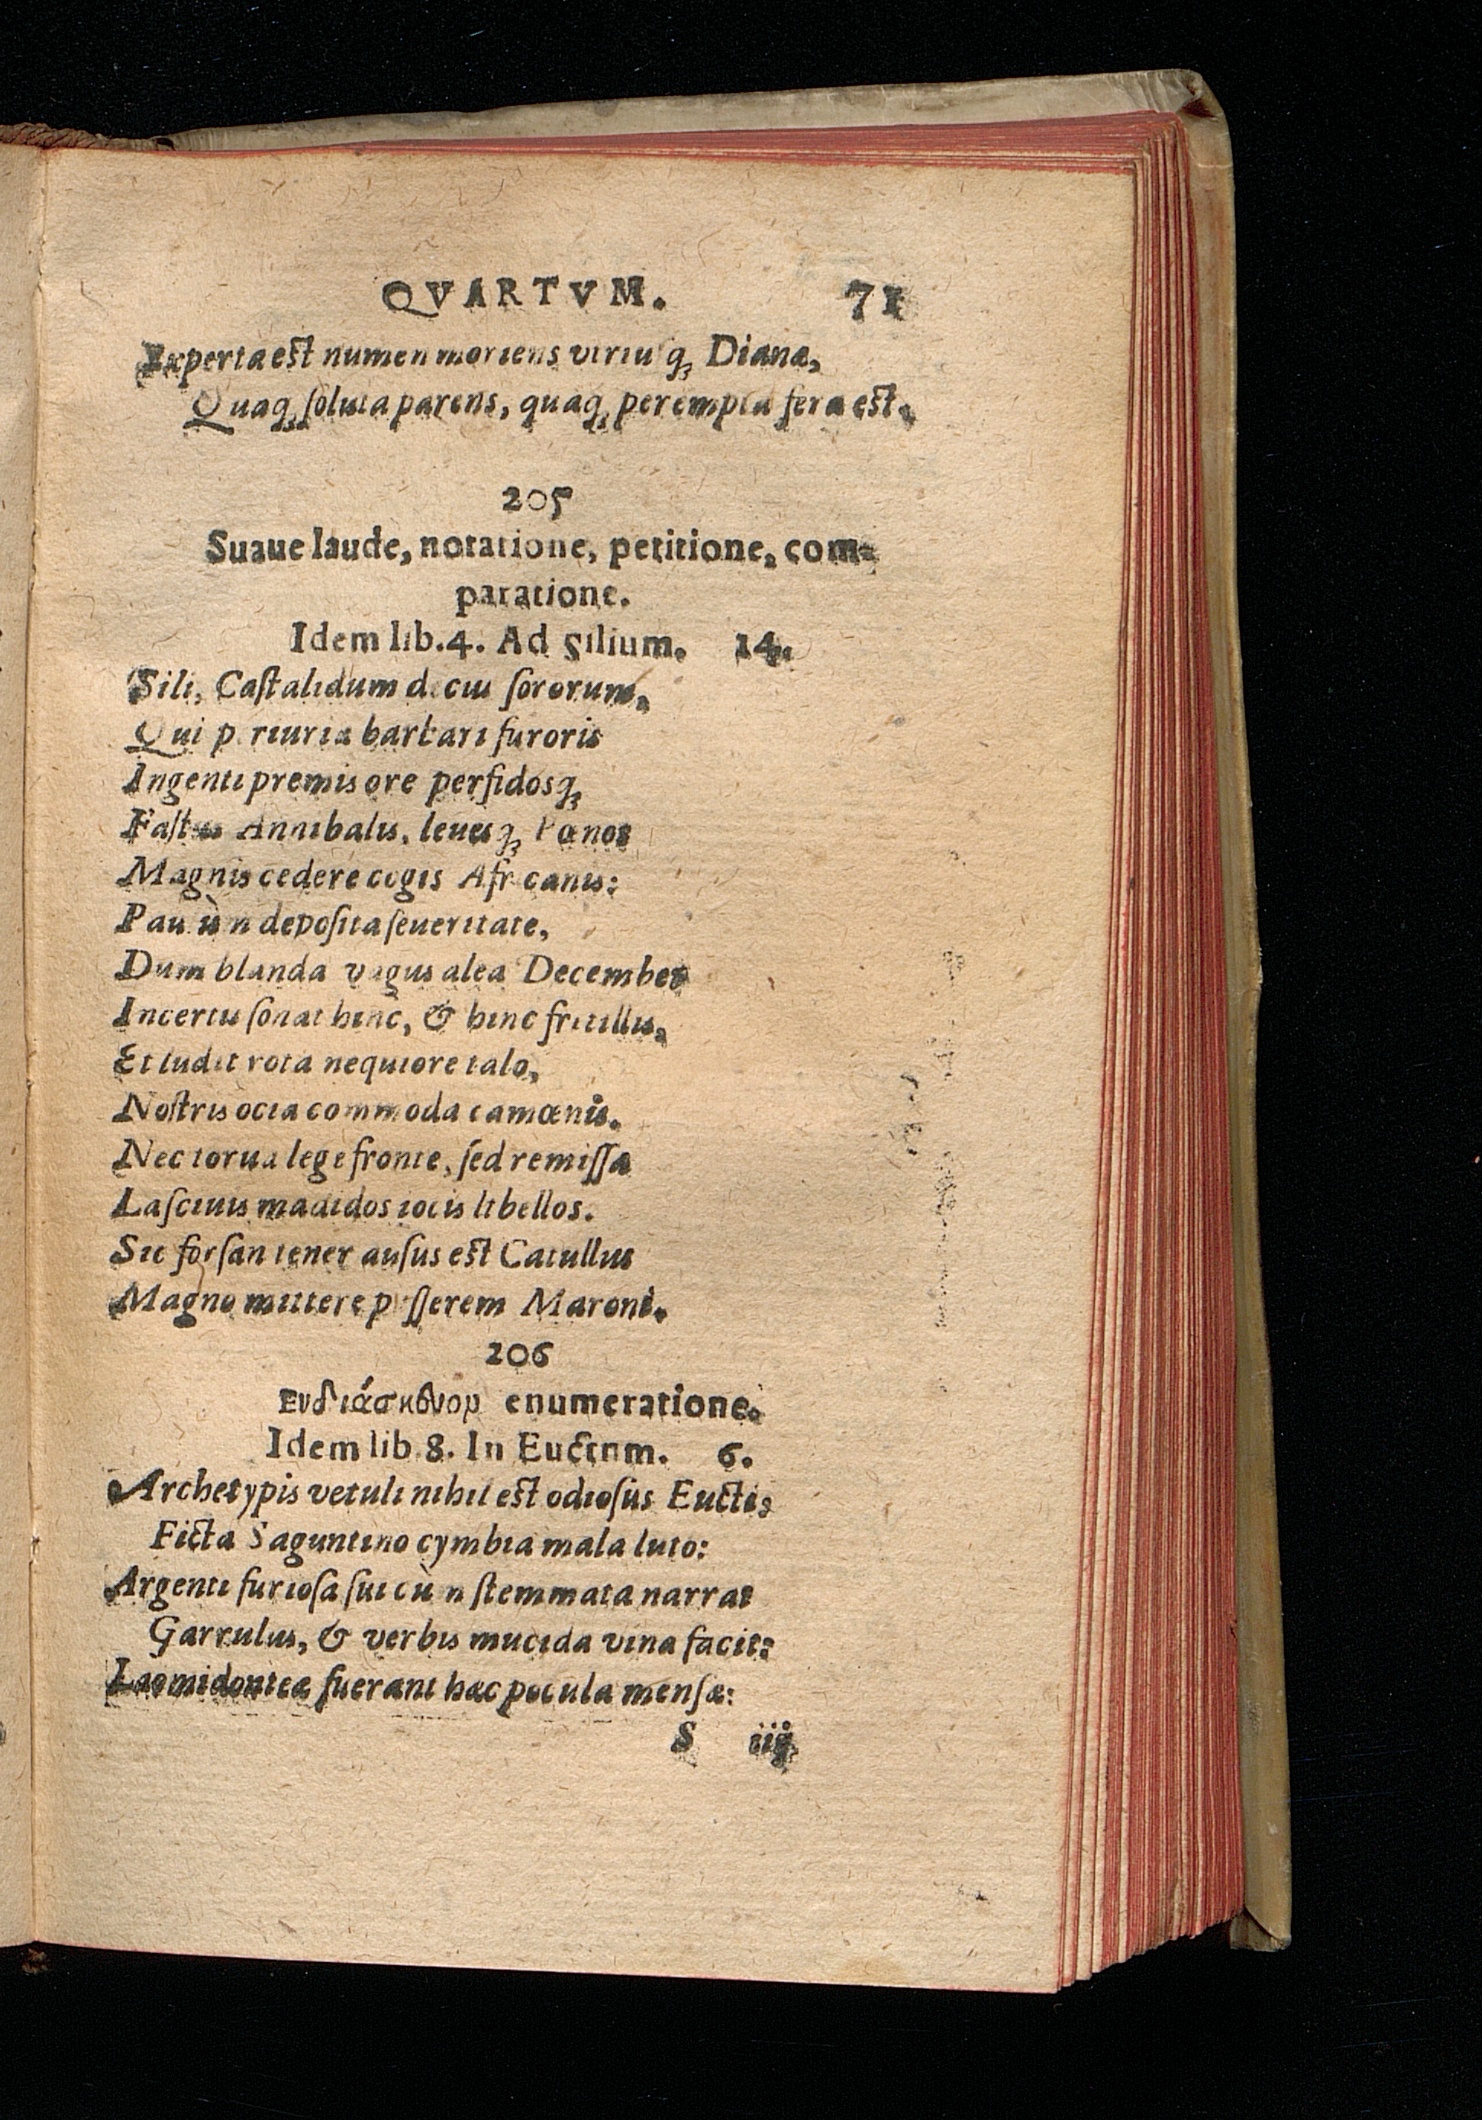 QVARTVM. 71
Experta est numen moriens vtriusq; Dianæ,
Quaq; soluta parens, quaq; perempta fera est.
205
Suaue laude, notatione, petitione, com-
paratione.
Idem lib.4. Ad Silium. 14.
Sili, Castalidum decus sororum,
Qui periuria barbari furoris
Ingenti premis ore perfidosq;
Fastus Annibalis, leuesq; Pœnos
Magnis cedere cogis Africanis:
Paulùm deposita seueritate,
Dum blanda vagus alea December
Incertis sonat hinc, & hinc fritillis,
Et ludit rota nequiore talo,
Nostris ocia commoda camœnis.
Nec torua lege fronte, sed remissa
Lasciuis madidos iocis libellos.
Sic forsan tener ausus est Catullus
Magno mittere passerem Maroni.
206
enumeratione.
Idem lib.8. In Euctum. 6.
Archetypis vetuli nihil est odiosius Eucti,
Ficta Saguntino cymbia mala luto:
Argenti furiosa sui cùm stemmata narrat
Garrulus, & verbis mucida vina facit:
Laomidonteæ fuerant hæc pocula mensæ:
S iij